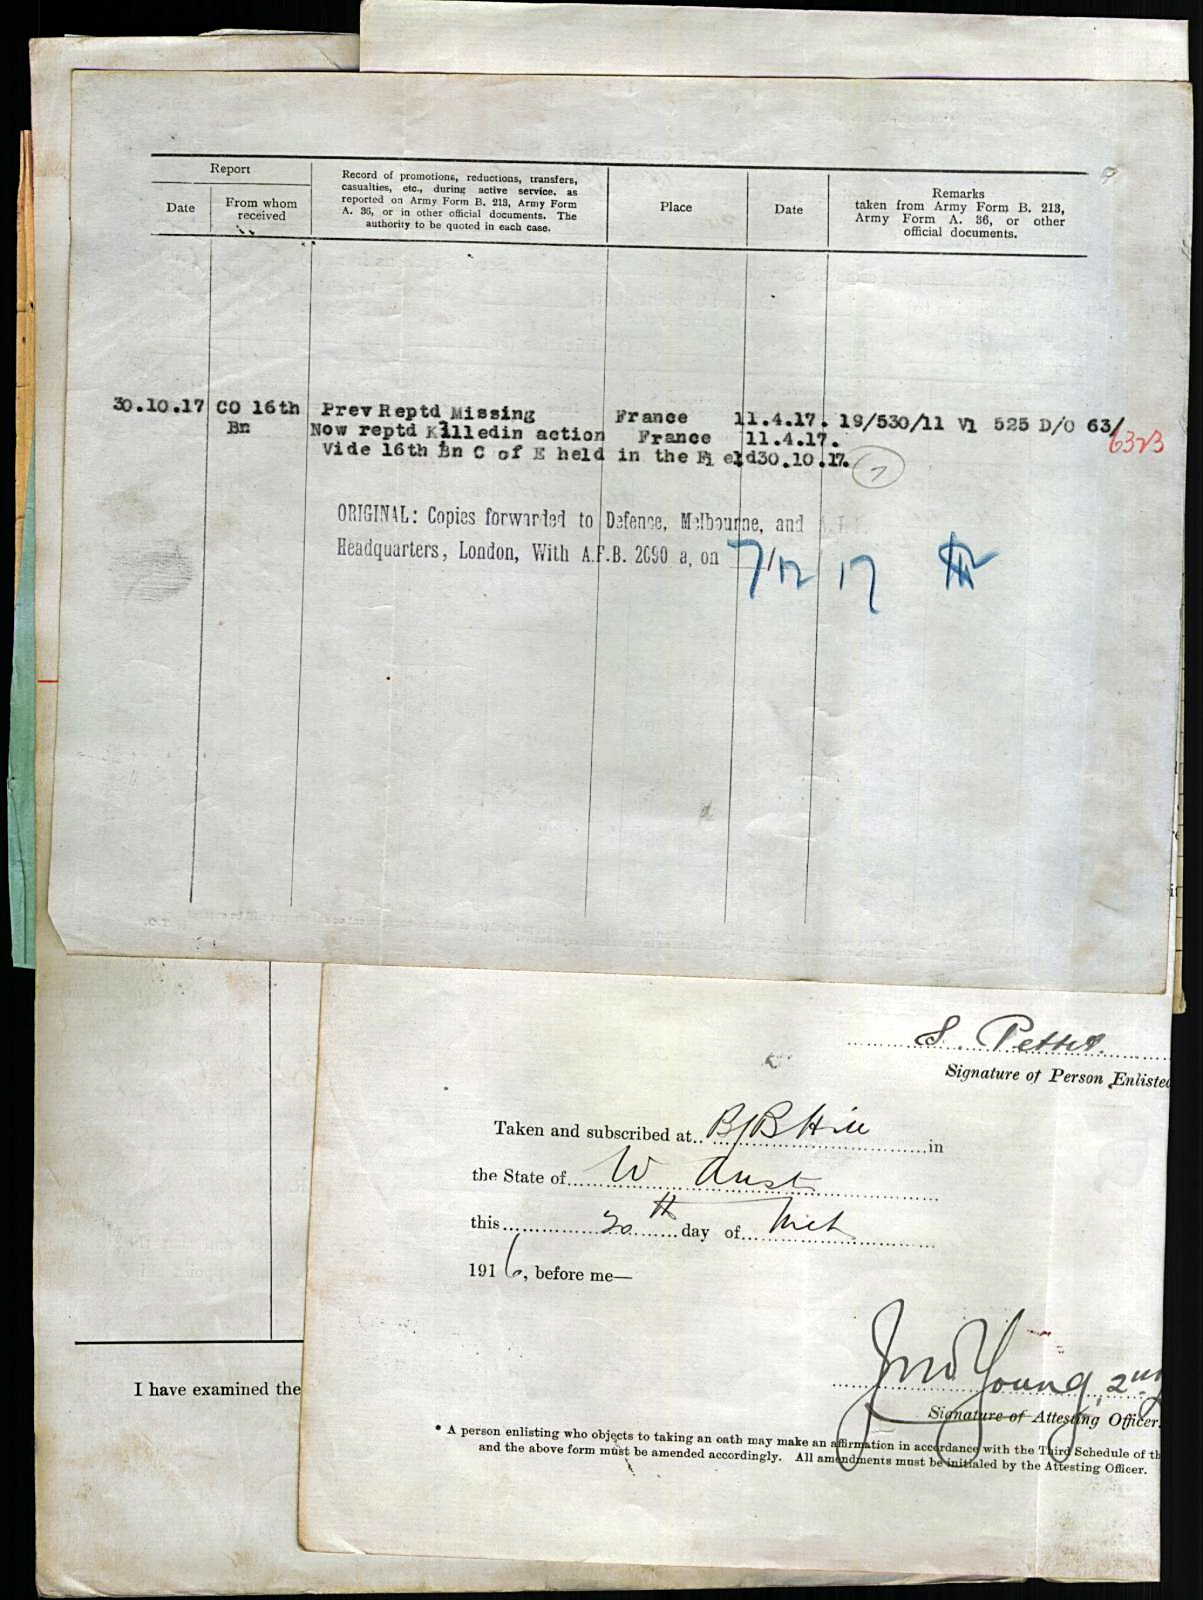 Report
Date
From whom
received
Record of promotions, reductions, transfers,
casualties, etc., during active service, as
reported on Army Form B. 213, Army Form
A. 36, or in other official documents. The
authority to be quoted in each case.
Place
Date
Remarks
taken from Army Form B. 213,
Army Form A. 36, or other
official documents.
30.10.17 CO 16th Prev Reptd Missing France 11.4.17. 19/530/11 V1 525 D/O 63/
6323
Bn Now reptd Killedin action France 11.4.17.
Vide 16th Bn C of E held in the Field30.10.17.
ORIGINAL: Copies forwarded to Defence, Melbourne, and A.I.F.
Headquarters, London, With A.F.B. 2090 a, on 7/12 17
S. Pettit
Signature of Person Enlisted
Taken and subscribed at B/B Hill in
the State of W Aust
this 20th day of Mch
1916, before me—
Jno Young, 2nd
Signature of Attesting Officer.
I have examined the
* A person enlisting who objects to taking an oath may make an affirmation in accordance with the Third Schedule of th
and the above form must be amended accordingly. All amendments must be initialed by the Attesting Officer.